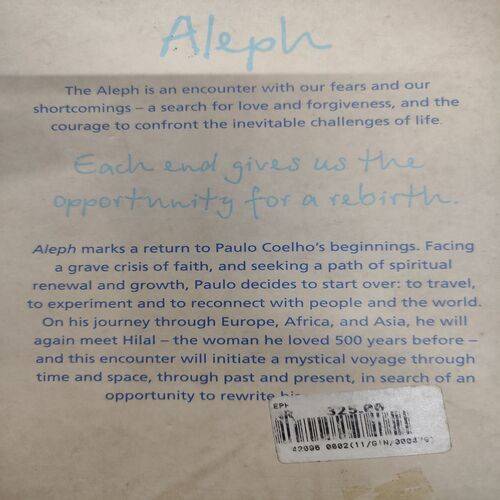 Aleph
The Aleph is an encounter with our fears and our
shortcomings – a search for love and forgiveness, and the
courage to confront the inevitable challenges of life.
Each end gives us the
opportunity for a rebirth.
Aleph marks a return to Paulo Coelho's beginnings. Facing
a grave crisis of faith, and seeking a path of spiritual
renewal and growth, Paulo decides to start over: to travel,
to experiment and to reconnect with people and the world.
On his journey through Europe, Africa, and Asia, he will
again meet Hilal – the woman he loved 500 years before –
and this encounter will initiate a mystical voyage through
time and space, through past and present, in search of an
opportunity to rewrite
325.00